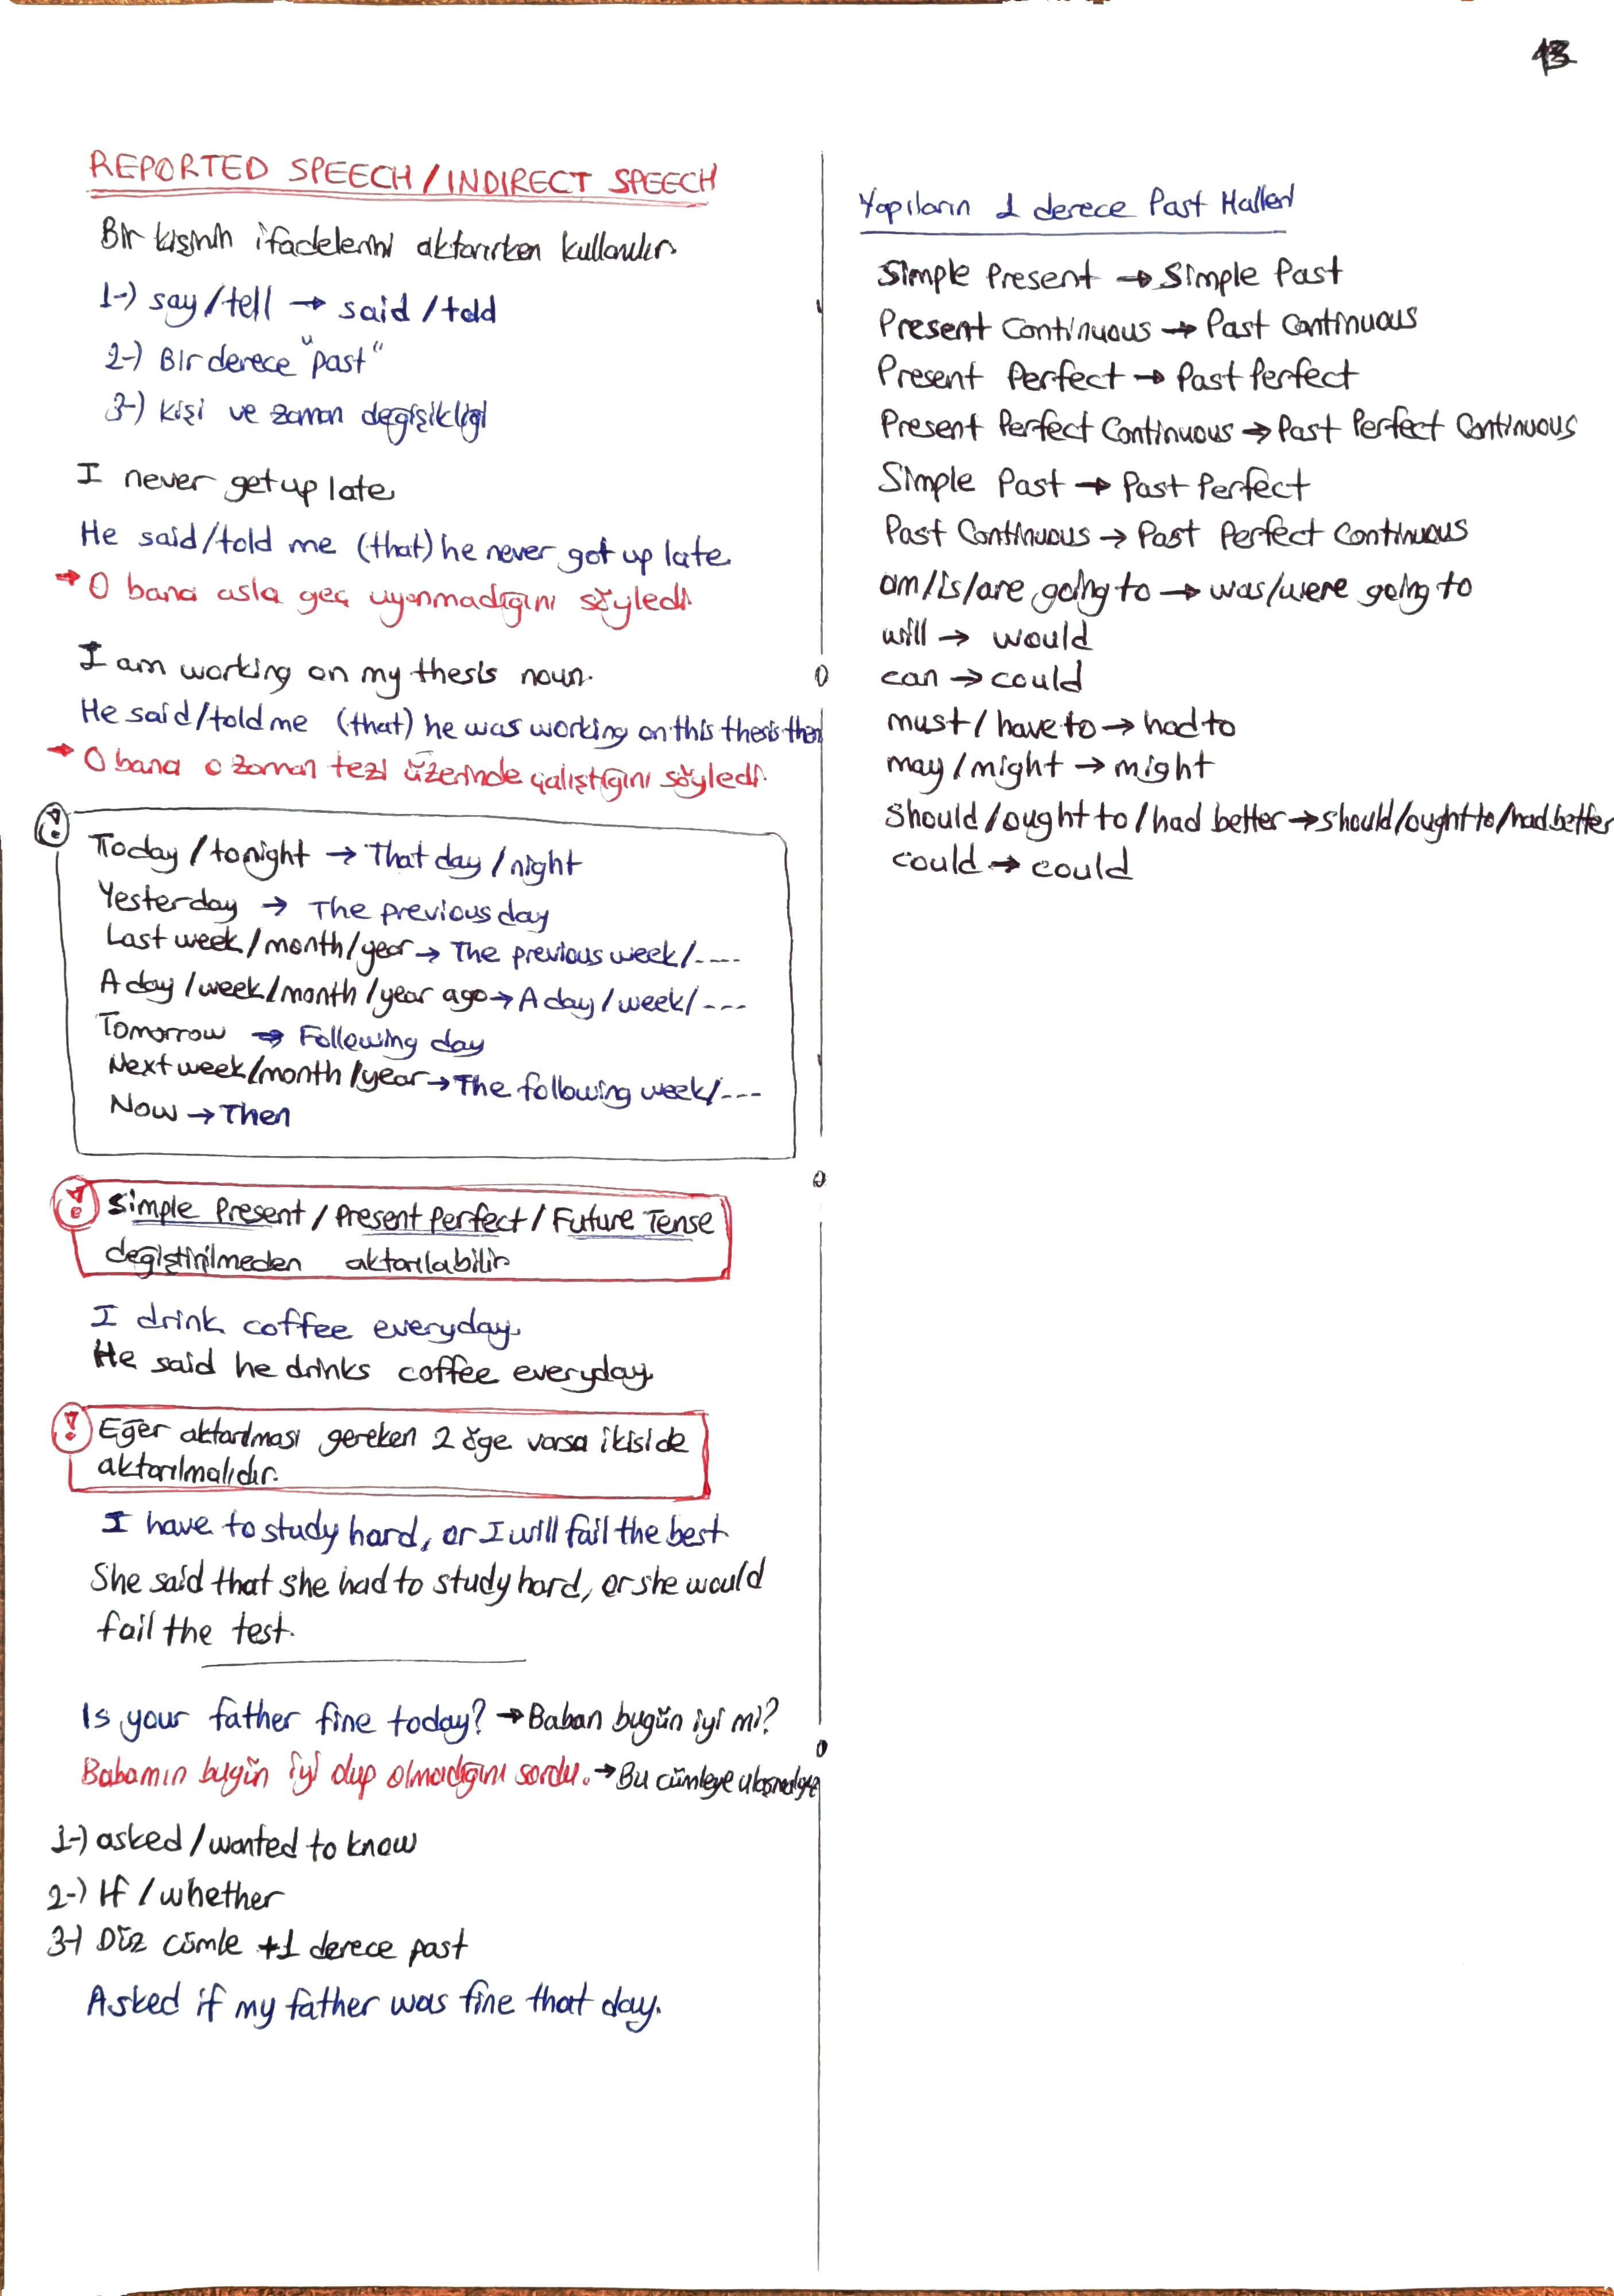 13
REPORTED SPEECH / INDIRECT SPEECH
Bir kişinin ifadelerini aktarırken kullanılır.
1-) say/tell → said/told
2-) Bir derece "past"
3-) kişi ve zaman değişikliği
I never get up late.
He said/told me (that) he never got up late.
→ O bana asla geç uyanmadığını söyledi.
I am working on my thesis noun.
He said/told me (that) he was working on this thesis then
→ O bana o zaman tezi üzerinde çalıştığını söyledi.
! Today / tonight → That day / night
Yesterday → The previous day
Last week / month / year → The previous week / ----
A day / week / month / year ago → A day / week / ---
Tomorrow → Following day
Next week / month / year → The following week / ---
Now → Then
! Simple Present / Present Perfect / Future Tense
değiştirilmeden aktarılabilir.
I drink coffee everyday.
He said he drinks coffee everyday.
! Eğer aktarılması gereken 2 öge varsa ikiside
aktarılmalıdır.
I have to study hard, or I will fail the best
She said that she had to study hard, or she would
fail the test.
Is your father fine today? → Baban bugün iyi mi?
Babamın bugün iyi olup olmadığını sordu. → Bu cümleye
1-) asked / wanted to know
2-) If / whether
3-) Düz cümle +1 derece past
Asked if my father was fine that day.
Yapıların 1 derece Past Halleri
Simple Present → Simple Past
Present Continuous → Past Continuous
Present Perfect → Past Perfect
Present Perfect Continuous → Past Perfect Continuous
Simple Past → Past Perfect
Past Continuous → Past Perfect Continuous
am/is/are going to → was/were going to
will → would
can → could
must / have to → had to
may / might → might
Should / ought to / had better → should / ought to / had better
could → could